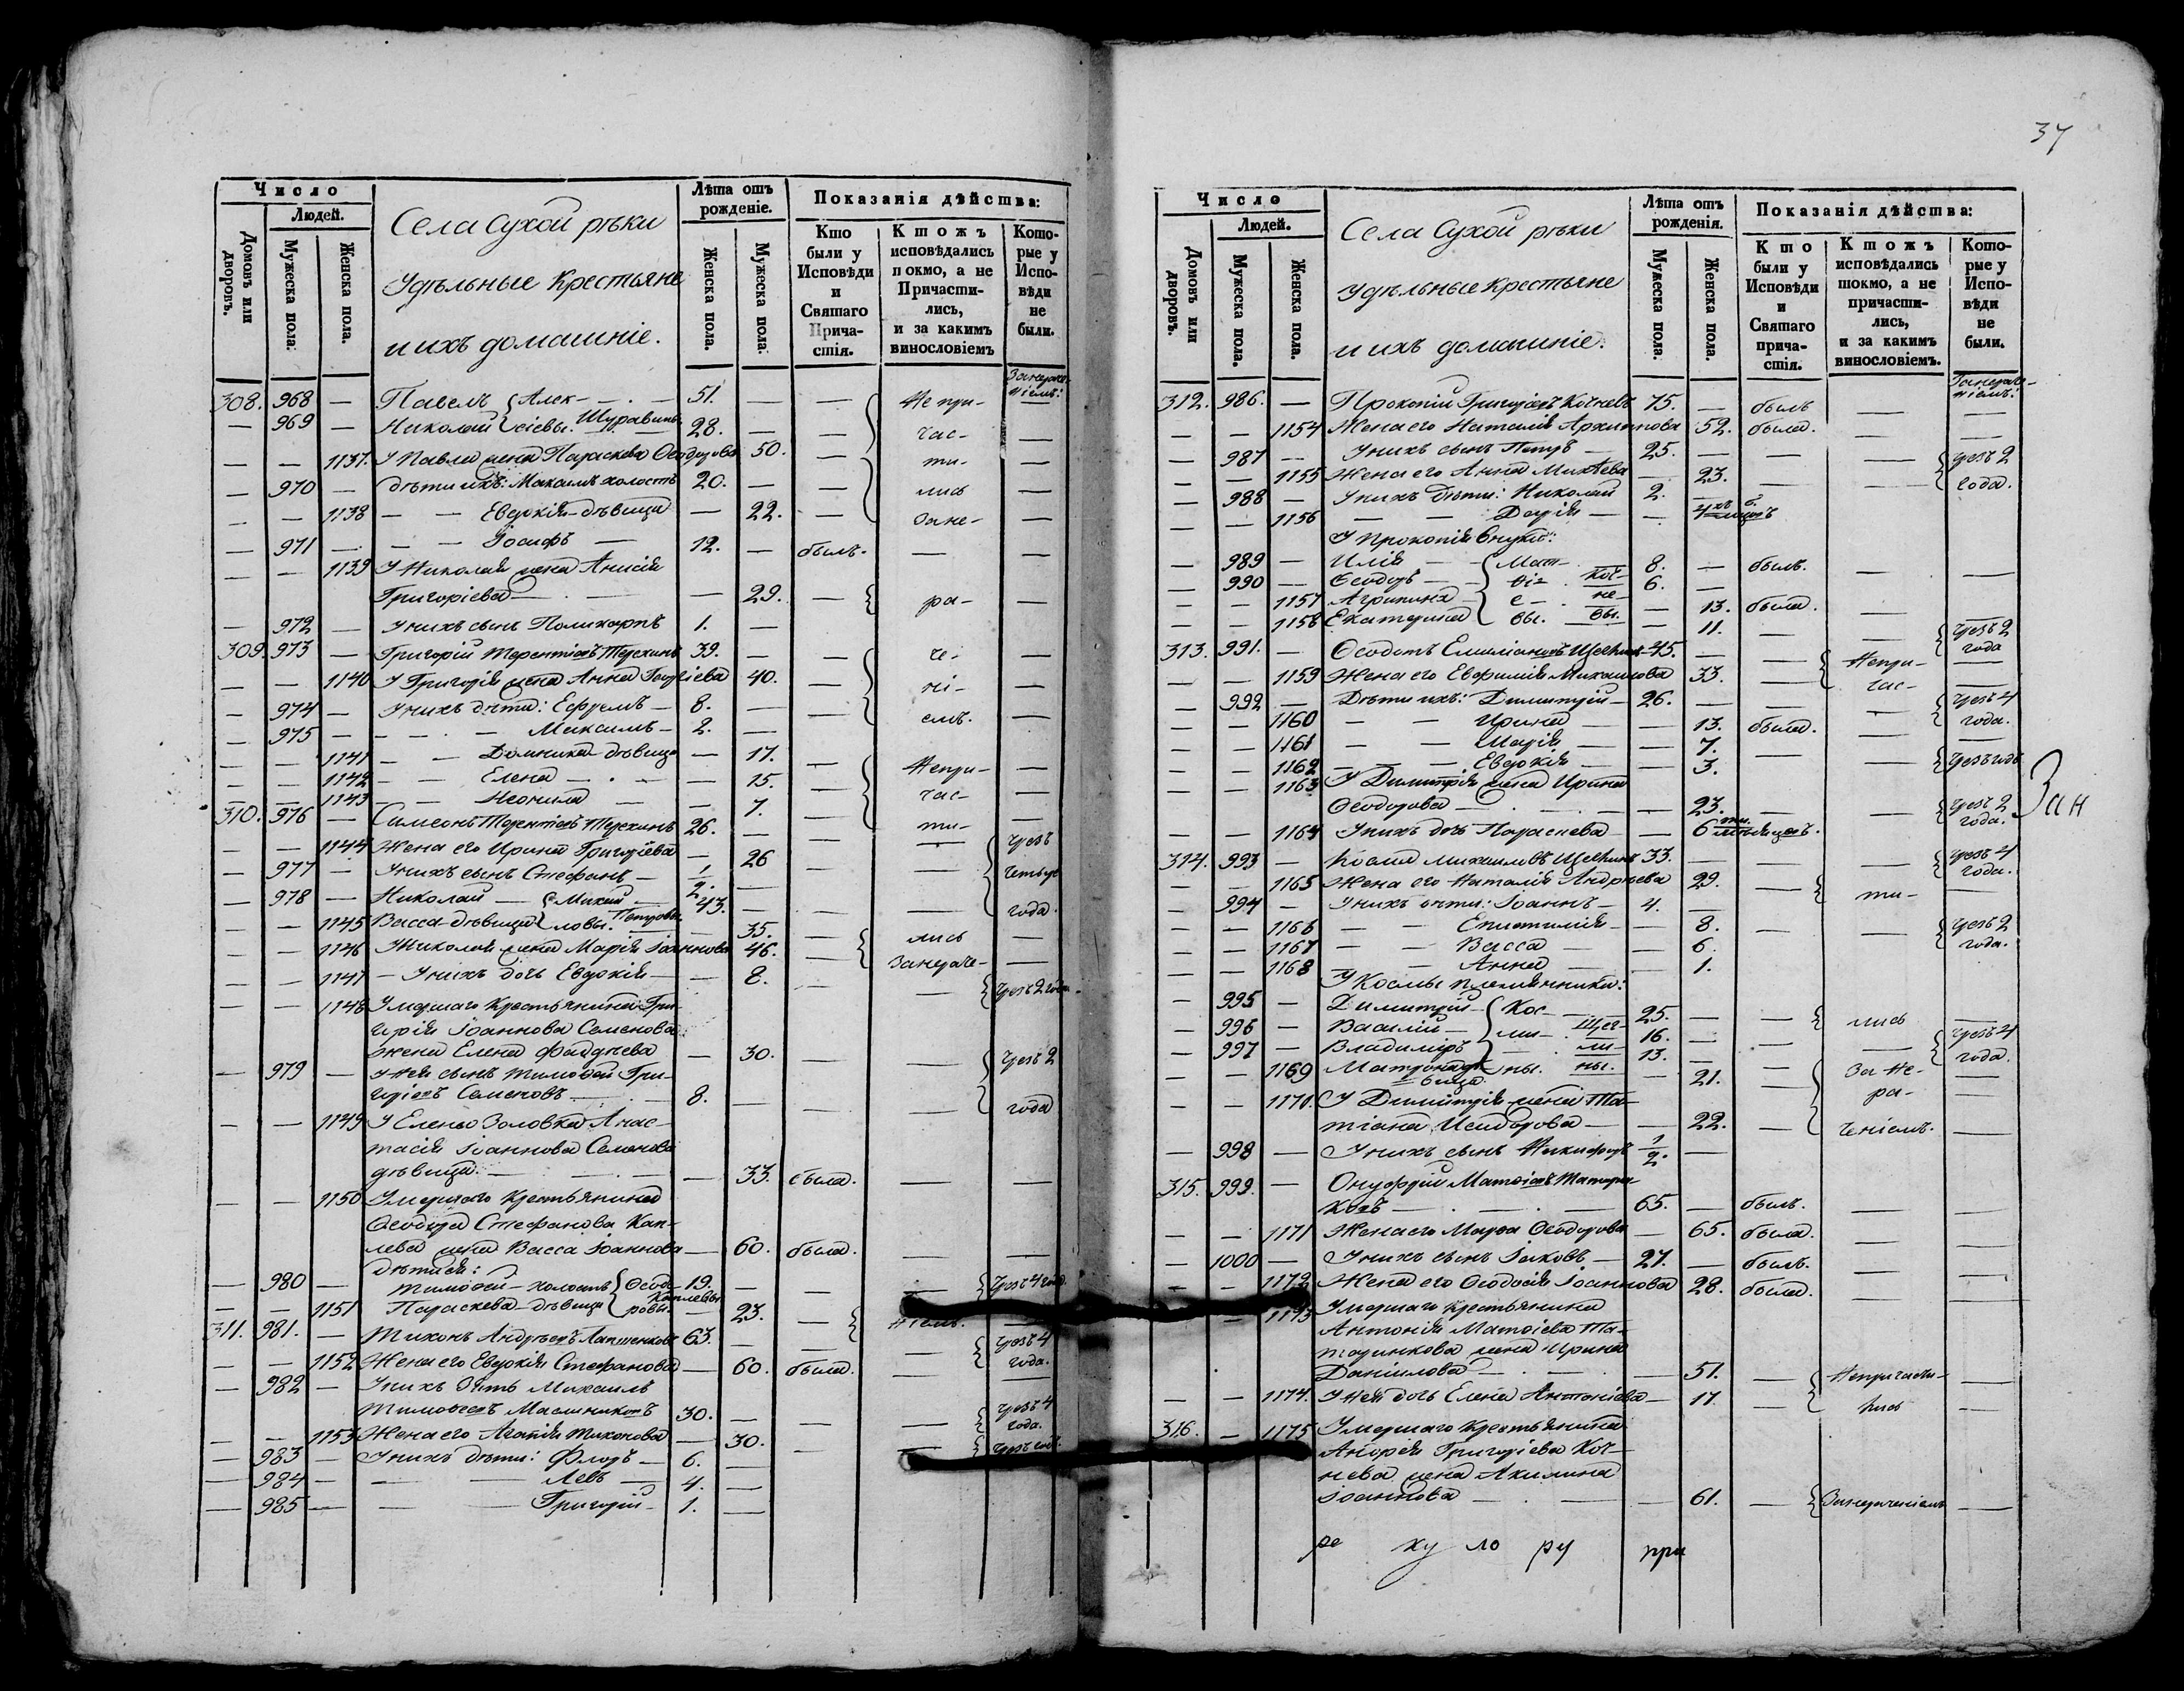 Число
Людей.
Домовъ или дворовъ.
Мужеска пола.
Женска пола.
Села Сухой рѣки
Удѣльные Крестьяне
и ихъ домашніе.
Лѣта отъ рожденіе.
Женска пола.
Мужеска пола.
Показанія дѣйства:
Кто были у Исповѣди и Святаго Прича-стія.
Ктожъ исповѣдались покмо, а не Причасти-лись, и за какимъ винословіемъ
Кото-рые у Испо-вѣди не были.
308. 968 — Павелъ Алек- 51. — — Непри-
— 969 — Николай сіевы. 28. — — час-
— — 1137. У Павла жена Параскева Ѳеодорова 50. — ти-
— 970 — дѣти ихъ: Максимъ холостъ 20. — — лись —
— — 1138 — — Евдокія дѣвица — 22. — Зане- —
— 971 — — — Іосифъ — 12. — былъ. — —
— — 1139 У Николая жена Анисія
Григоріева — — 29. — ра- —
— 972 — У нихъ сынъ Поликарпъ 1. —
309. 973 — Григорій Терентіевъ Терехинъ 39. — — че- —
— — 1140 У Григорія жена Анна Георгіева 40. — ні- —
— 974 — У нихъ дѣти: Ефремъ — 8. — — емъ. —
— 975 — — — Максимъ — 2. —
— — 1141 — — Домника дѣвица — 17. — Непри- —
— — 1142 — — Елена — — 15. — час- —
— — 1143 — — Неонила — — 7. — ти- —
310. 976 — Симеонъ Терентіевъ Терехинъ 26. — — — чрезъ
— — 1144 Жена его Ирина Григоріева — 26 — — четыре
— 977 — У нихъ сынъ Стефанъ — 1/2. —
— 978 — Николай — Михай- 43. — — — года.
— — 1145 Васса дѣвица ловы. Петровы. — 35. — лись —
— — 1146 У Николая жена Марія Іоаннова 46. — Занераче- —
— — 1147 — У нихъ дочь Евдокія — — 8. — — Чрезъ 2 года.
— — 1148 Умершаго Крестьянина Гри-
горія Іоаннова Семенова
жена Елена Фаддѣева — 30. — — Чрезъ 2
— 979 — У ней сынъ Тимоѳей Гри-
горіевъ Семеновъ — 8. — — — года
— — 1149 У Елены Золовка Анас-
тасія Іоаннова Семенова
дѣвица. — — 33. была. — —
— — 1150 Умершаго Крестьянина
Ѳеодора Стефанова Кап-
лева жена Васса Іоаннова — 60. была. — —
дѣти ея:
— 980 — Тимоѳей — холостъ Ѳеодо- 19. — — — Чрезъ 4 года.
— — 1151 Параскева дѣвица ровы Каплевы — 23. — ніемъ. —
311. 981. — Тихонъ Андреевъ Лапшенковъ 63. — — — чрезъ 4
— — 1152 Жена его Евдокія Стефанова — 60. была. — года.
— 982 — У нихъ зять Михаилъ
Тимоѳеевъ Маслениковъ 30. — — — чрезъ 4 года.
— — 1153 Жена его Агапія Тихонова — 30. — — Чрезъ годъ.
— 983 — У нихъ дѣти: Флоръ — 6. —
— 984 — — — Левъ — 4. —
— 985 — — — Григорій — 1. —
37
Число
Людей.
Домовъ или дворовъ.
Мужеска пола.
Женска пола.
Села Сухой рѣки
Удѣльные Крестьяне
и ихъ домашніе.
Лѣта отъ рожденія.
Мужеска пола.
Женска пола.
Показанія дѣйства:
Кто были у Исповѣди и Святаго прича-стія.
Ктожъ исповѣдались токмо, а не причасти-лись, и за какимъ винословіемъ.
Кото-рые у Испо-вѣди не были.
312. 986. — Прокопій Григорьевъ Кочневъ 75. — былъ —
— — 1154 Жена его Наталія Архипова 52. была. — —
— 987 — У нихъ сынъ Петръ — 25. — — — чрезъ 2
— — 1155 Жена его Анна Михѣева — 23. — — года.
— 988 — У нихъ дѣти: Николай 2. —
— — 1156 — — Дарія — —
У Прокопія внуки:
— 989 — Илія — Мат- 8. — былъ.
— 990 — Ѳеодоръ — ѳі- Коч- 6. — — —
— — 1157 Агрипина е- не- — 13. была. —
— — 1158 Екатерина вы. вы. — 11. — — чрезъ 2 года
313. 991. — Ѳеодотъ Емиліановъ 45. — — Непри- —
— — 1159 Жена его Евфимія Михайлова 33. — час- —
— 992 — Дѣти ихъ: Димитрій — 26. — — — чрезъ 4
— — 1160 — — Ирина — — 13. была. — года.
— — 1161 — — Марія — — 7. — —
— — 1162 — — Евдокія — — 3. — Чрезъ годъ
— — 1163 У Димитрія жена Ирина
Ѳеодорова — — 23. — — чрезъ 2 года.
Зан
— — 1164 У нихъ дочь Параскева — 6 мѣсяцовъ.
314. 993 — Косма Михаиловъ 33. — — — чрезъ 4 года.
— — 1165 Жена его Наталія Андреева 29. — ти- —
— 994 — У нихъ дѣти: Іоаннъ — 4. —
— — 1166 — — Епистимія — — 8. — — чрезъ 2
— — 1167 — — Васса — — 6. года.
— — 1168 — — Анна — — 1.
У Космы племянники:
— 995 — Димитрій Кос- 25. — — лись —
— 996 — Василій — ми- 16. — — — чрезъ 4
— 997 — Владиміръ — ли- 13. — — года.
— — 1169 Матрона ны. ны. — 21. — За не- —
— — 1170. У Димитрія жена Та- ра- —
тіана Исидорова — — 22. — ченіемъ. —
— 998 — У нихъ сынъ Никифоръ 1/2. —
315. 999. — Онуфрій Матѳіевъ Татарин-
ковъ — 65. — былъ. — —
— — 1171 Жена его Марѳа Ѳеодорова — 65. была. — —
— 1000 — У нихъ сынъ Іаковъ — 27. — былъ. — —
— — 1172 Жена его Ѳеодосія Іоаннова 28. была. — —
— 1173 Умершаго Крестьянина
Антонія Матѳіева Та-
таринкова жена Ирина
Даніилова — — 51. — Непричасти- —
— — 1174. У ней дочь Елена Антоніева — 17. — лись —
316. — 1175 Умершаго Крестьянина
Андрея Григоріева Коч-
нева жена Акилина
Іоаннова — — 61. — Занераченіемъ —
ре ху ло ру при